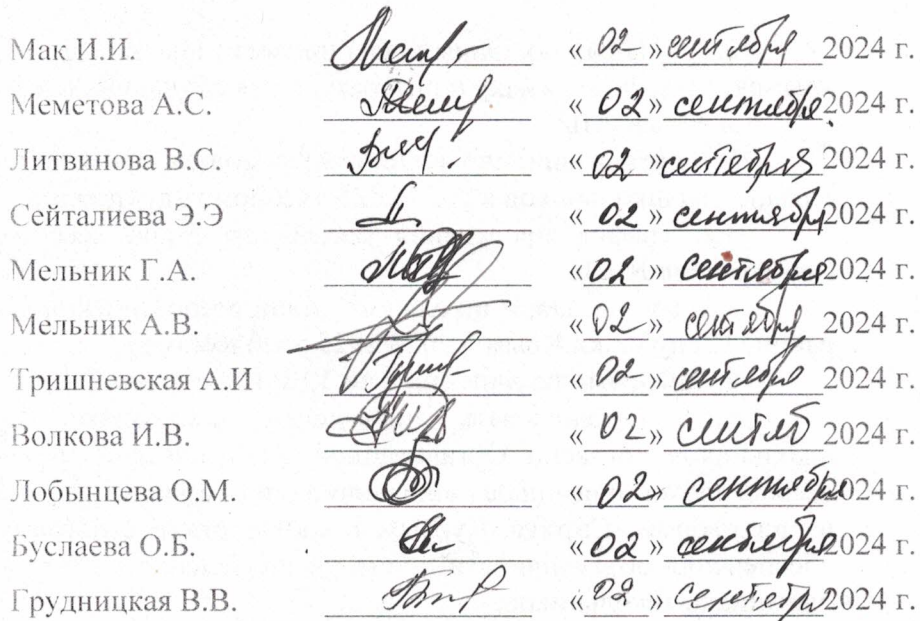 Мак И.И. «02» сентября 2024 г.
Меметова А.С. «02» сентября 2024 г.
Литвинова В.С. «02» сентября 2024 г.
Сейталиева Э.Э «02» сентября 2024 г.
Мельник Г.А. «02» сентября 2024 г.
Мельник А.В. «02» сентября 2024 г.
Тришневская А.И «02» сентября 2024 г.
Волкова И.В. «02» сентяб 2024 г.
Лобынцева О.М. «02» сентября 2024 г.
Буслаева О.Б. «02» сентября 2024 г.
Грудницкая В.В. «02» сентября 2024 г.